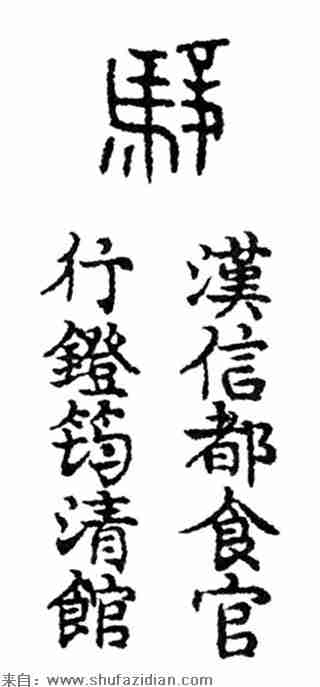 漢信都食官
行鐙筠清館
来自：www.shufazidian.com